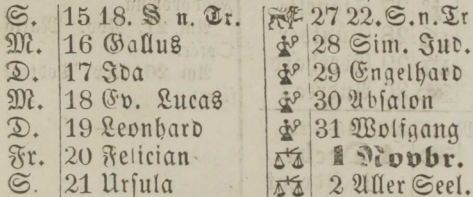 S. 15 18. S. n. Tr. 27 22. S. n. Tr
M. 16 Gallus 28 Sim. Jud.
D. 17 Ida 29 Engelhard
M. 18 Ev. Lucas 30 Absalon
D. 19 Leonhard 31 Wolfgang
Fr. 20 Felician 1 Novbr.
S. 21 Ursula 2 Aller Seel.